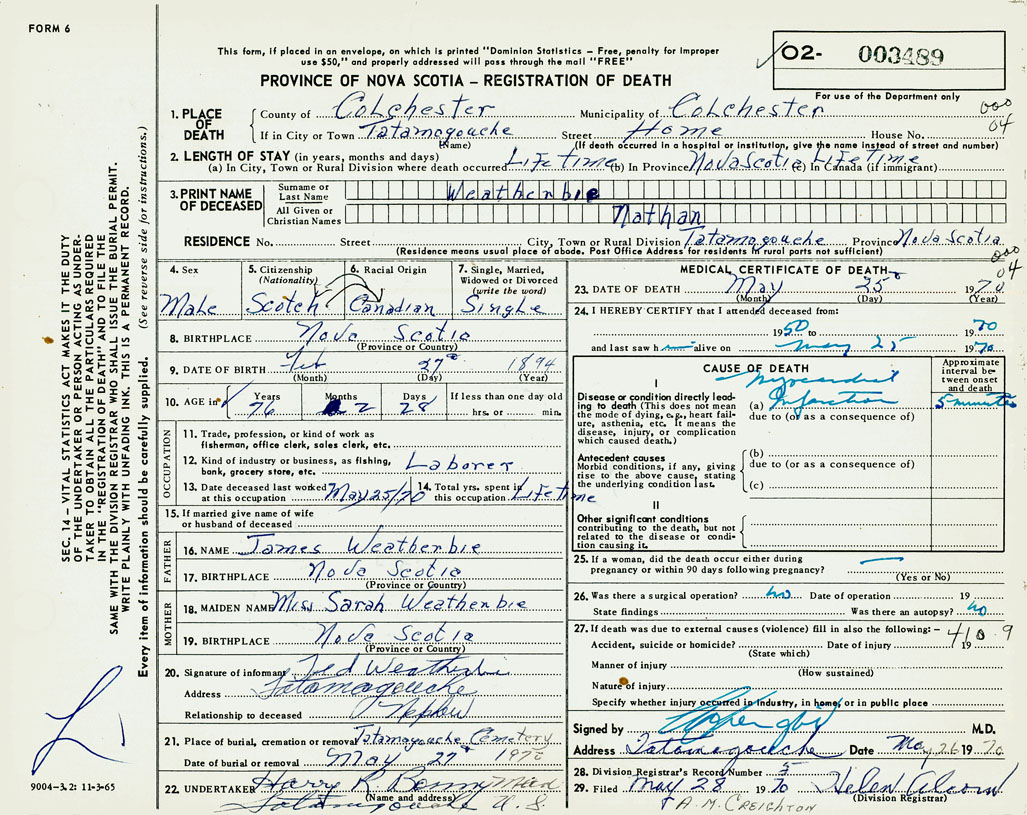 FORM 6
This form, if placed in an envelope, on which is printed "Dominion Statistics – Free, penalty for improper
use $50," and properly addressed will pass through the mail "FREE"
PROVINCE OF NOVA SCOTIA – REGISTRATION OF DEATH
O2- 003489
For use of the Department only
1. PLACE OF DEATH
County of Colchester Municipality of Colchester
000
04
If in City or Town Tatamagouche Street Home House No.
(Name) (If death occurred in a hospital or institution, give the name instead of street and number)
2. LENGTH OF STAY (in years, months and days)
(a) In City, Town or Rural Division where death occurred Life time (b) In Province Nova Scotia (c) In Canada (if immigrant) Life Time
3. PRINT NAME OF DECEASED
Surname or Last Name Weatherbie
All Given or Christian Names Nathan
RESIDENCE No. Street City, Town or Rural Division Tatamagouche Province Nova Scotia
(Residence means usual place of abode. Post Office Address for residents in rural parts not sufficient)
000
04
4. Sex
Male
5. Citizenship
(Nationality)
Scotch
6. Racial Origin
Canadian
7. Single, Married,
Widowed or Divorced
(write the word)
Single
8. BIRTHPLACE Nova Scotia
(Province or Country)
9. DATE OF BIRTH Feb 27 1894
(Month) (Day) (Year)
10. AGE in
Years 76
Months 2
Days 28
If less than one day old
hrs. or min.
OCCUPATION
11. Trade, profession, or kind of work as
fisherman, office clerk, sales clerk, etc.
12. Kind of industry or business, as fishing,
bank, grocery store, etc. Laborer
13. Date deceased last worked
at this occupation May 25/70
14. Total yrs. spent in
this occupation Life time
15. If married give name of wife
or husband of deceased
FATHER
16. NAME James Weatherbie
17. BIRTHPLACE Nova Scotia
(Province or Country)
MOTHER
18. MAIDEN NAME Miss Sarah Weatherbie
19. BIRTHPLACE Nova Scotia
(Province or Country)
20. Signature of informant Ted Weatherbie
Address Tatamagouche
Relationship to deceased Nephew
21. Place of burial, cremation or removal Tatamagouche Cemetery
Date of burial or removal May 27 1970
22. UNDERTAKER Harry R
(Name and address)
Tatamagouche N.S
MEDICAL CERTIFICATE OF DEATH
23. DATE OF DEATH May 25 1970
(Month) (Day) (Year)
24. I HEREBY CERTIFY that I attended deceased from:
1950 to 1970
and last saw h alive on May 25 1970
CAUSE OF DEATH
Approximate
interval be-
tween onset
and death
I
Disease or condition directly lead-
ing to death (This does not
mean the mode of dying, e.g., heart fail-
ure, asthenia, etc. It means the
disease, injury, or complication
which caused death.)
(a) Myocardial Infarction 5 minutes
due to (or as a consequence of)
Antecedent causes
Morbid conditions, if any, giving
rise to the above cause, stating
the underlying condition last.
(b)
due to (or as a consequence of)
(c)
II
Other significant conditions
contributing to the death, but not
related to the disease or condi-
tion causing it.
25. If a woman, did the death occur either during
pregnancy or within 90 days following pregnancy?
(Yes or No)
26. Was there a surgical operation? no Date of operation 19
State findings Was there an autopsy? no
27. If death was due to external causes (violence) fill in also the following:– 410.9
Accident, suicide or homicide? Date of injury 19
(State which)
Manner of injury
(How sustained)
Nature of injury
Specify whether injury occurred in industry, in home, or in public place
Signed by M.D.
Address Tatamagouche Date May 26 1970
28. Division Registrar's Record Number 5
29. Filed May 28 1970 Helen Alcorn
(Division Registrar)
A. M. CREIGHTON
SEC. 14 – VITAL STATISTICS ACT MAKES IT THE DUTY
OF THE UNDERTAKER OR PERSON ACTING AS UNDER-
TAKER TO OBTAIN ALL THE PARTICULARS REQUIRED
IN THE "REGISTRATION OF DEATH" AND TO FILE THE
SAME WITH THE DIVISION REGISTRAR WHO SHALL ISSUE THE BURIAL PERMIT.
WRITE PLAINLY WITH UNFADING INK. THIS IS A PERMANENT RECORD.
Every item of information should be carefully supplied. (See reverse side for instructions.)
9004-3.2: 11-3-65